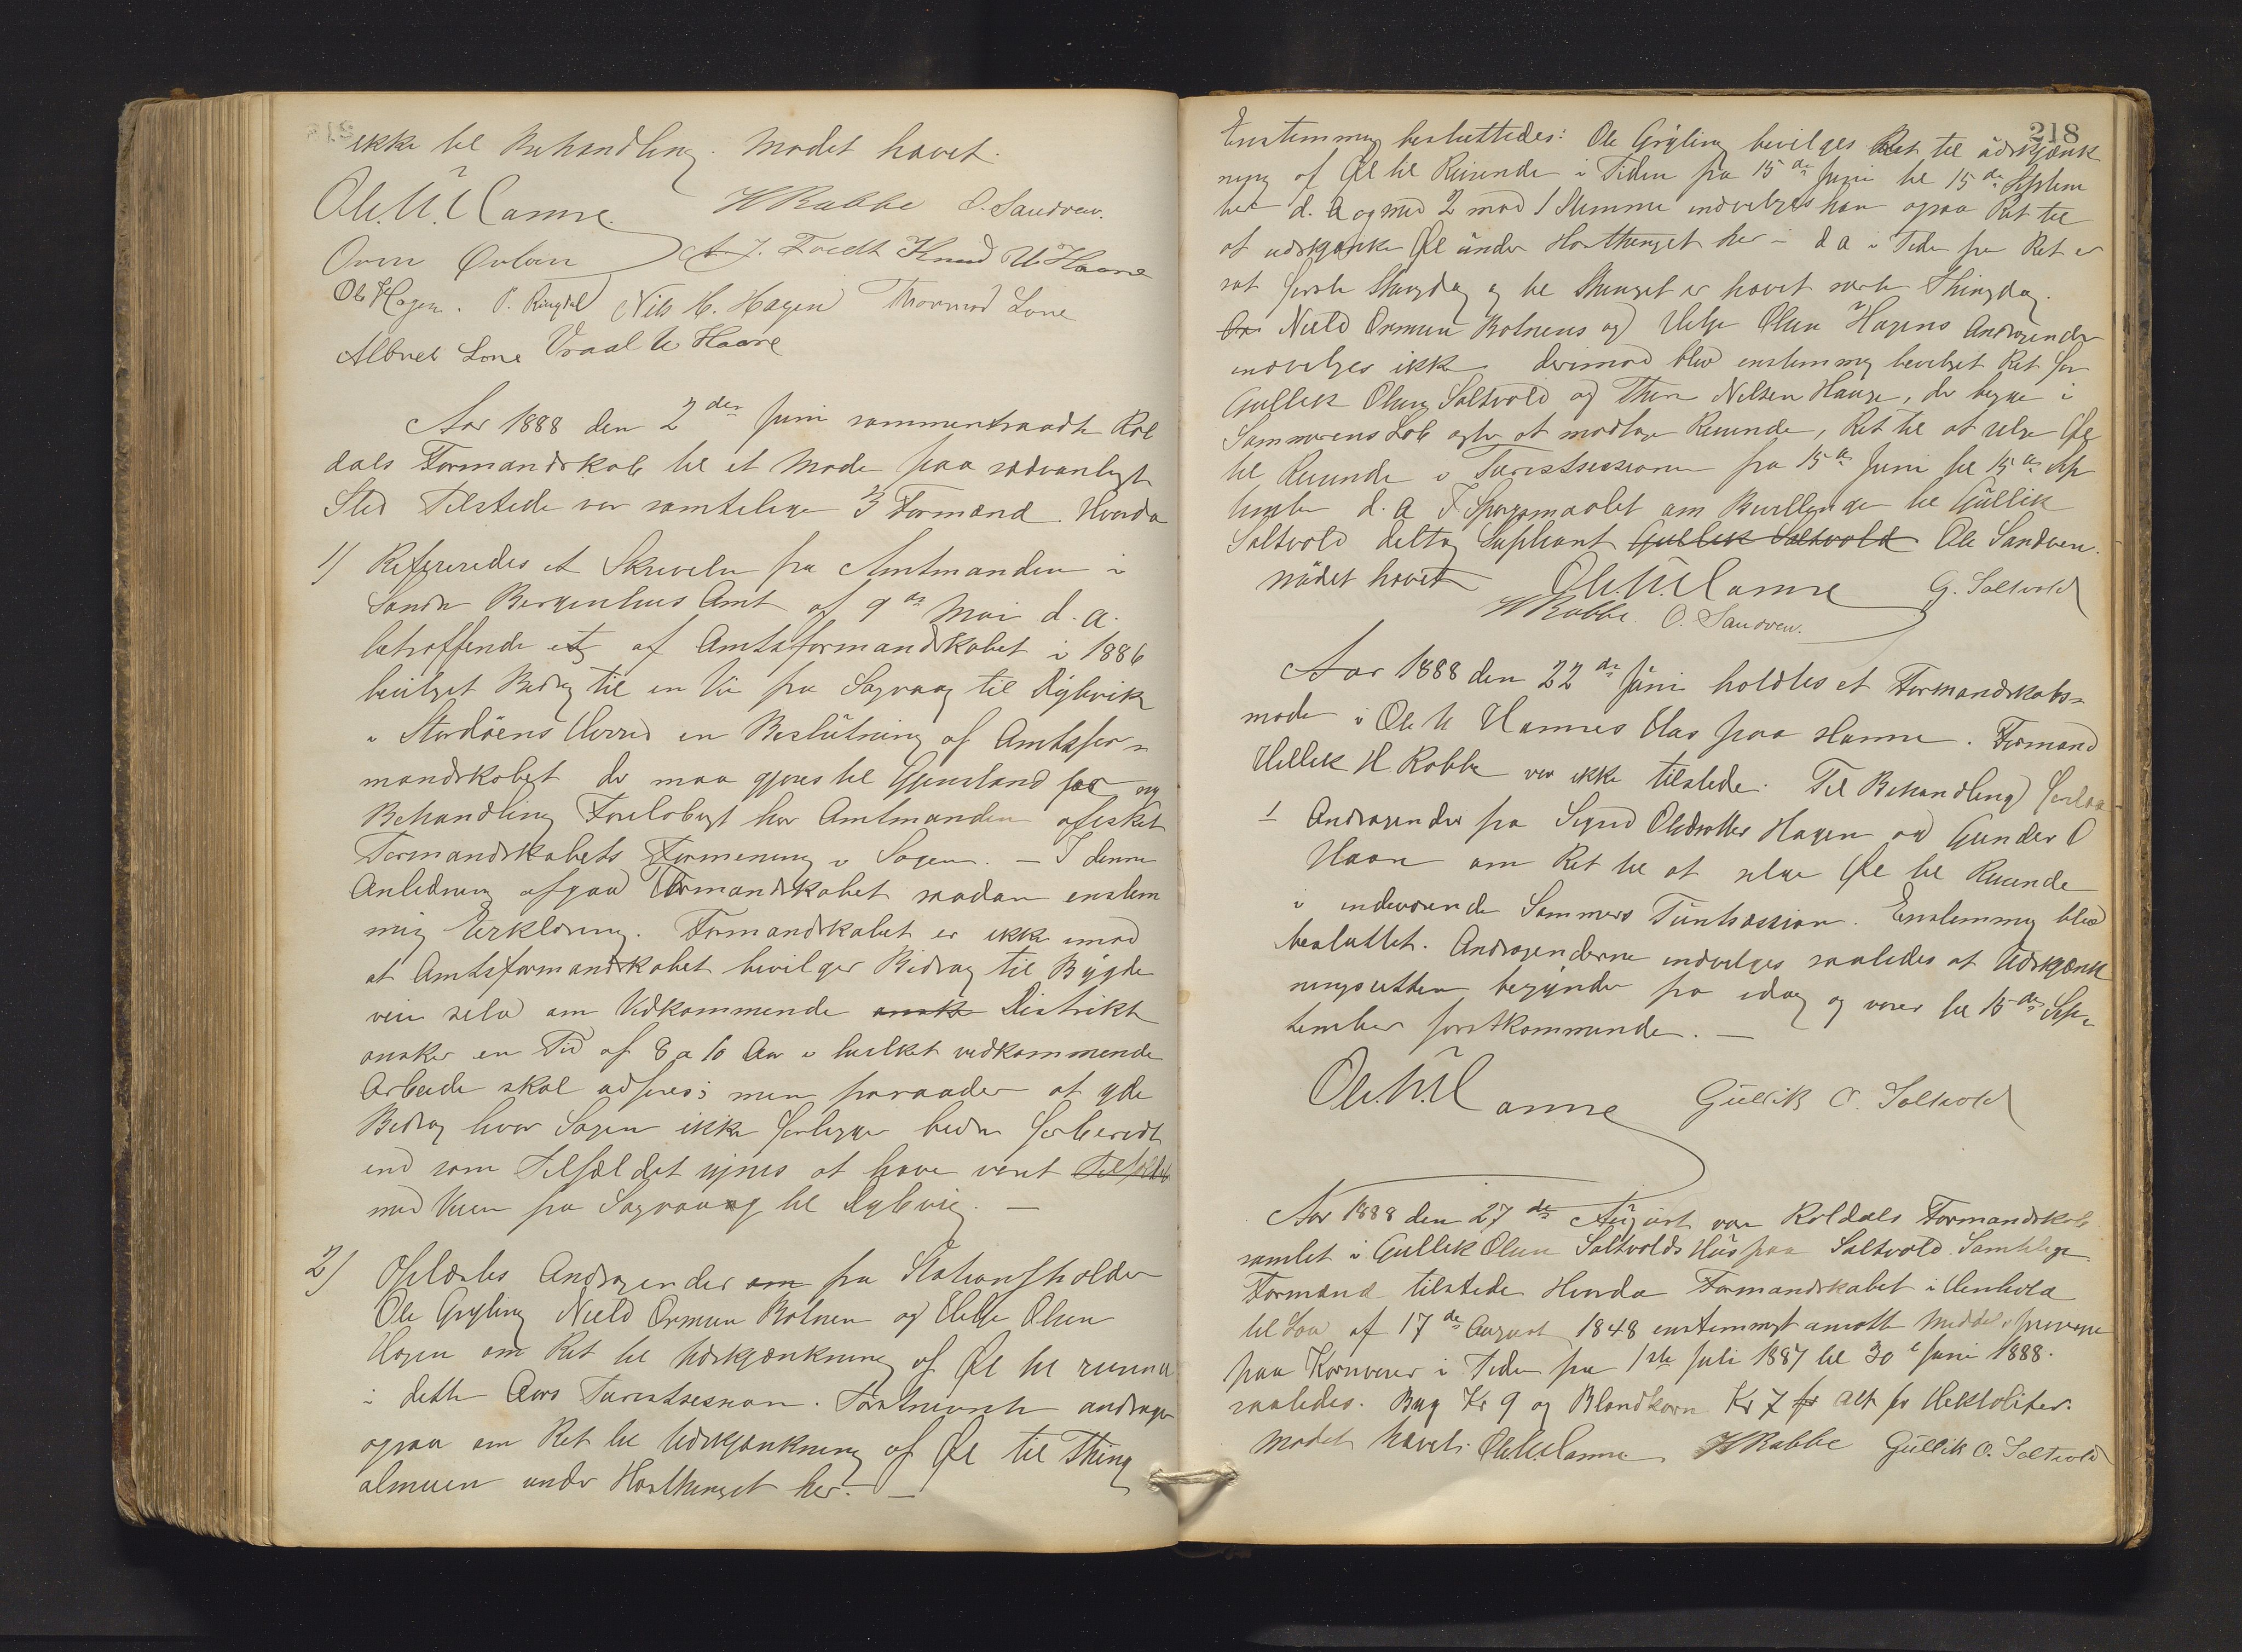 ikke til Behandling. Mødet hævet.
Ole. N. Hamre HRabbe O. Sandven.
Orm Øvben A. J. Foldt Knud N Haare
Ole Hagen. P. Ringdal Nils H. Hagen Thormod Lone
Albret Lone Vraal N Haare
Aar 1888 den 2den Juni sammentraadte Røl
dals Formandskab til et Møde paa sædvanligt
Sted Tilstede var samtlige 3 Formænd. Hvorda
1) Refereredes et Skrivelse fra Amtmanden i
Søndre Bergenhus Amt af 9de Mai d. a.
betræffende et af Amtsformandskabet i 1886
bevilget Bidrag til en Vei fra Sagvaag til Dybvik
i Stordøens Herred en Beslutning af Amtsfor=
mandskabet der maa gjøres til Gjenstand for ny
Behandling Foreløbigt har Amtmanden afæsket
Formandskabets Formening i Sagen. — I denne
Anledning afgav Formandskabet saadan enstem
mig Erklæring. Formandskabet er ikke imod
at Amtsformandskabet bevilger Bidrag til Bygde
veie selv om Vedkommende ønsk Distrikt
ønsker en Tid af 8 a 10 Aar i hvilket vedkommende
Arbeide skal udføres; men fraraader at yde
Bidrag hvor Sagen ikke foreligger bedre forberedt
end som Tilfældet synes at have været Tilfældet
med Veien fra Sagvaag til Dybvig. —
2) Oplæstes Andragender om fra Stationsholder
Ole Gryting Nield Ormsen Botnen og Helge Olsen
Hagen om Ret til Udskjænkning af Øl til reisende
i dette Aars Turistsesson. Førstnævnte andrager
ogsaa om Ret til Udskjænkning af Øl til Thing
almuen under Høstthinget her. —
218
Enstemmig besluttedes: Ole Gryting bevilges Ret til udskjænk
ning af Øl til Reisende i Tiden fra 15de Juni til 15de Septem
ber d. A og med 2 mod 1 Stemme indvilges han ogsaa Ret til
at udskjænke Øl under Høstthinget her i d a i Tiden fra Ret er
sat første Thingdag og til Thinget er hævet sidste Thingdag.
An Nield Ormsen Botnens og Helge Olsen Hagens Andragender
indvilges ikke derimod blev enstemmig bevilget Ret for
Gullik Olsen Saltvold og Thore Nelsen Hauge, der begge i
Sommerens Løb agter at modtage Reisende, Ret til at selge Øl
til Reisende i Turistsessionen fra 15de Juni til 15de Sep
tember d. a I Spørgsmaalet om Bevillingen til Gullik
Saltvold deltog Supliant Gullik Saltvold Ole Sandven.
Mødet hævet Ole. N. Hamre G. Saltvold
HRabbe. O. Sandven.
Aar 1888 den 22de Juni holdtes et Formandskabs=
møde i Ole N Hamres Hus paa Hamre. Formand
Hellik H Rabbe var ikke tilstede. Til Behandling forelaa
1 Andragender fra Sigrid Olsdatter Hagen og Gunder O
Haare om Ret til at selge Øl til Reisende
i indeværende Sommers Turistsession. Enstemmig blev
besluttet. Andragenderne indvilges saaledes at Udskjænk
ningsretten begynder fra idag og varer til 15de Sep=
tember førstkommende. —
Ole. N. Hamre Gullik O. Saltvold
Aar 1888 den 27de August var Røldals Formandskab
samlet i Gullik Olsen Saltvolds Hus paa Saltvold. Samtlige
Formænd tilstede Hvorda Formandskabet i Henhold
til Lov af 17de August 1848 enstemmigt ansatte Middelpriserne
paa Kornvarer i Tiden fra 1ste Juli 1887 til 30te Juni 1888.
saaledes. Byg Kr 9 og Blandkorn Kr 7 pr alt pr Hektoliter.
Mødet hævet. Ole. N. Hamre HRabbe Gullik O. Saltvold